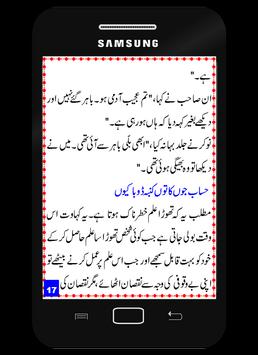 SAMSUNG
ہے۔"
ان صاحب نے کہا، "تم عجیب آدمی ہو۔ باہر گئے نہیں اور
دیکھے بغیر کہہ دیا کہ ہاں ہو رہی ہے۔"
نوکر نے جلد بہانہ کیا، "ابھی بلّی باہر سے آئی تھی۔ میں نے
دیکھا تو وہ بھیگی ہوئی تھی۔"
حساب جوں کا توں کنبہ ڈوبا کیوں
مطلب یہ کہ تھوڑا علم خطرناک ہوتا ہے۔ یہ کہاوت اس
وقت بولی جاتی ہے جب کوئی شخص تھوڑا سا علم حاصل کر کے
خود کو بہت قابل سمجھے اور جب اس علم پر عمل کرنے بیٹھے تو
اپنی بے وقوفی کی وجہ سے نقصان اٹھائے، مگر نقصان کی
17